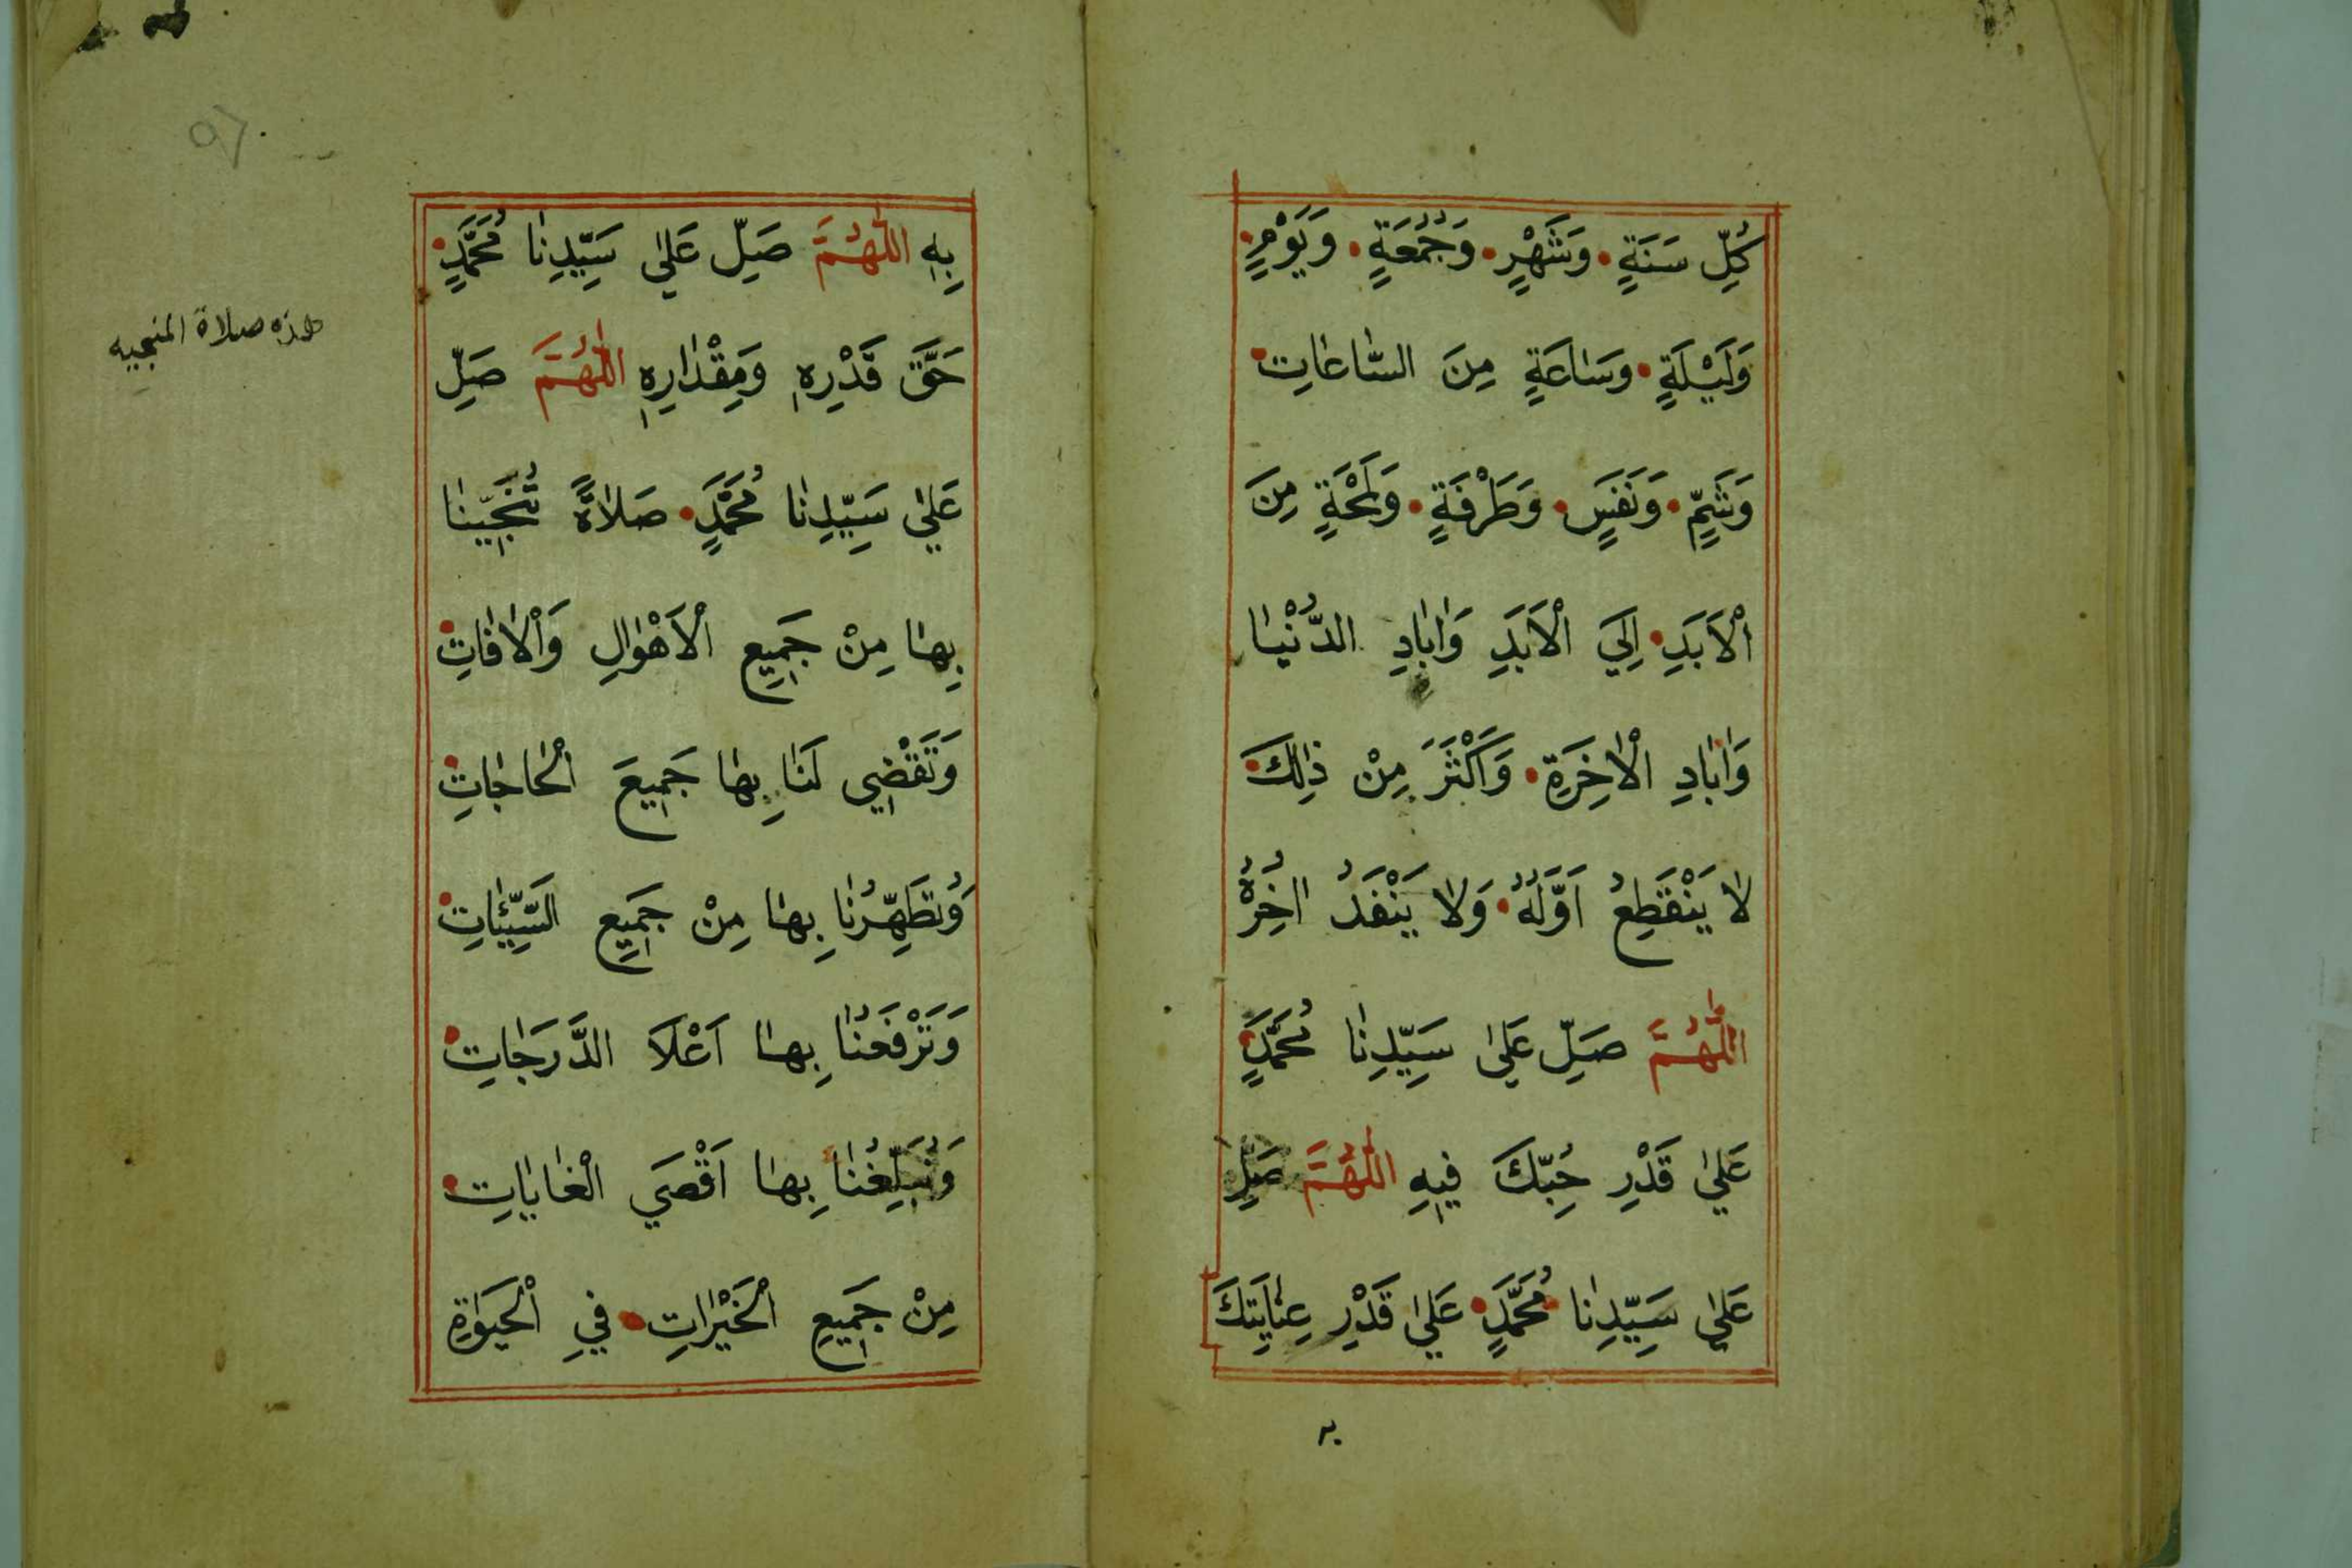 كُلِّ سَنَةٍ وَشَهْرٍ وَجُمُعَةٍ وَيَوْمٍ
وَلَيْلَةٍ وَسَاعَةٍ مِنَ السَّاعَاتِ
وَشَمٍّ وَنَفَسٍ وَطَرْفَةٍ وَلَمْحَةٍ مِنَ
الْاَبَدِ اِلَي الْاَبَدِ وَابَادِ الدُّنْيَا
وَابَادِ الْاخِرَةِ وَاَكْثَرَ مِنْ ذٰلِكَ
لَا يَنْقَطِعُ اَوَّلُهُ وَلَا يَنْفَدُ اخِرُهُ
اَللّٰهُمَّ صَلِّ عَلٰي سَيِّدِنَا مُحَمَّدٍ
عَلٰي قَدْرِ حُبِّكَ فِيهِ اَللّٰهُمَّ صَلِّ
عَلٰي سَيِّدِنَا مُحَمَّدٍ عَلٰي قَدْرِ عِنَايَتِكَ
به
بِهِ اَللّٰهُمَّ صَلِّ عَلٰي سَيِّدِنَا مُحَمَّدٍ
حَقَّ قَدْرِهِ وَمِقْدَارِهِ اَللّٰهُمَّ صَلِّ
عَلٰي سَيِّدِنَا مُحَمَّدٍ صَلَاةً تُنَجِّينَا
بِهَا مِنْ جَمِيعِ الْاَهْوَالِ وَالْافَاتِ
وَتَقْضِي لَنَا بِهَا جَمِيعَ الْحَاجَاتِ
وَتُطَهِّرُنَا بِهَا مِنْ جَمِيعِ السَّيِّئَاتِ
وَتَرْفَعُنَا بِهَا اَعْلَا الدَّرَجَاتِ
وَتُبَلِّغُنَا بِهَا اَقْصَي الْغَايَاتِ
مِنْ جَمِيعِ الْخَيْرَاتِ فِي الْحَيٰوةِ
هذه صلاة المنجيه